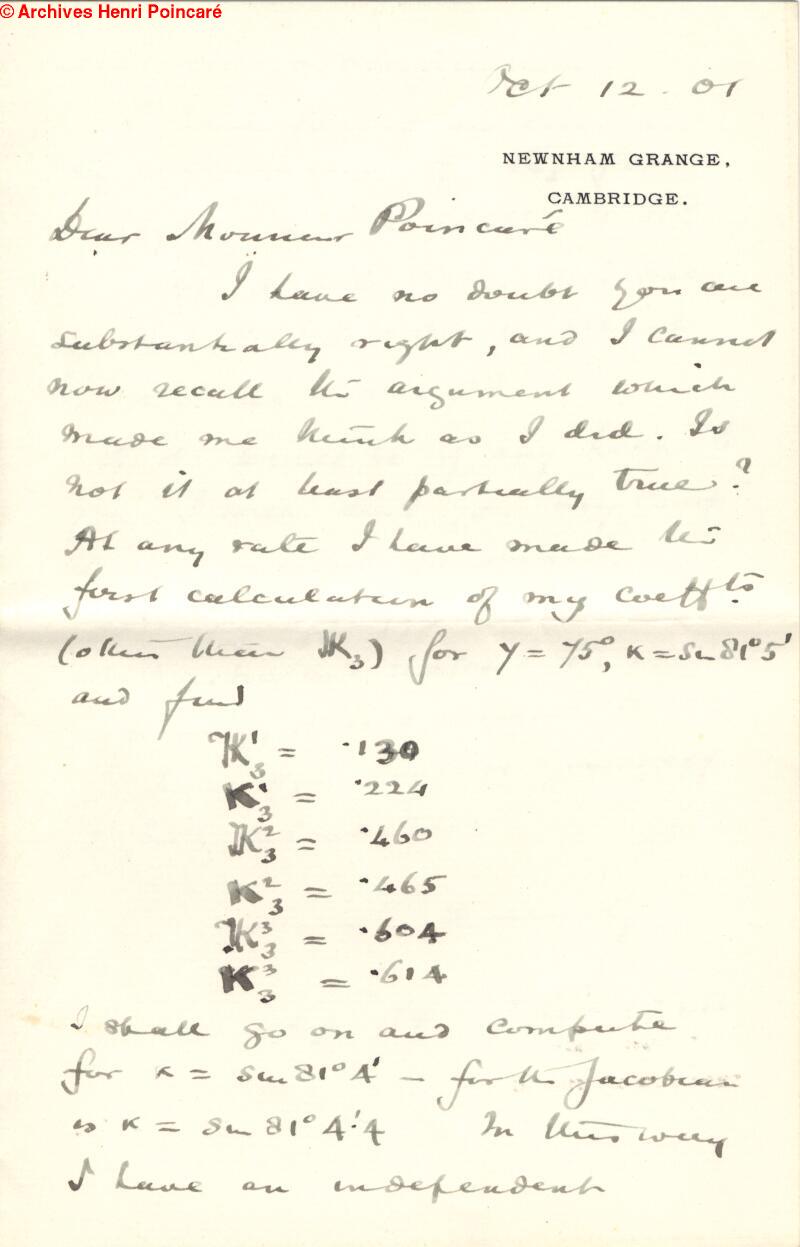 © Archives Henri Poincaré
Oct 12. 01
NEWNHAM GRANGE,
CAMBRIDGE.
Dear Monsieur Poincaré
I have no doubt you are
substantially right, and I cannot
now recall the argument which
made me think as I did. Is
not it at least partially true?
At any rate I have made the
first calculation of my coeffts.
(other than 𝐊₃) for γ = 75°, κ = sin 81° 5'
and find
𝐊₃¹ = ·130
K₃¹ = ·224
𝐊₃² = ·460
K₃² = ·465
𝐊₃³ = ·604
K₃³ = ·614
I shall go on and compute
for κ = sin 81° 4' – for the Jacobian
is κ = sin 81° 4'·4 In this way
I have an independent